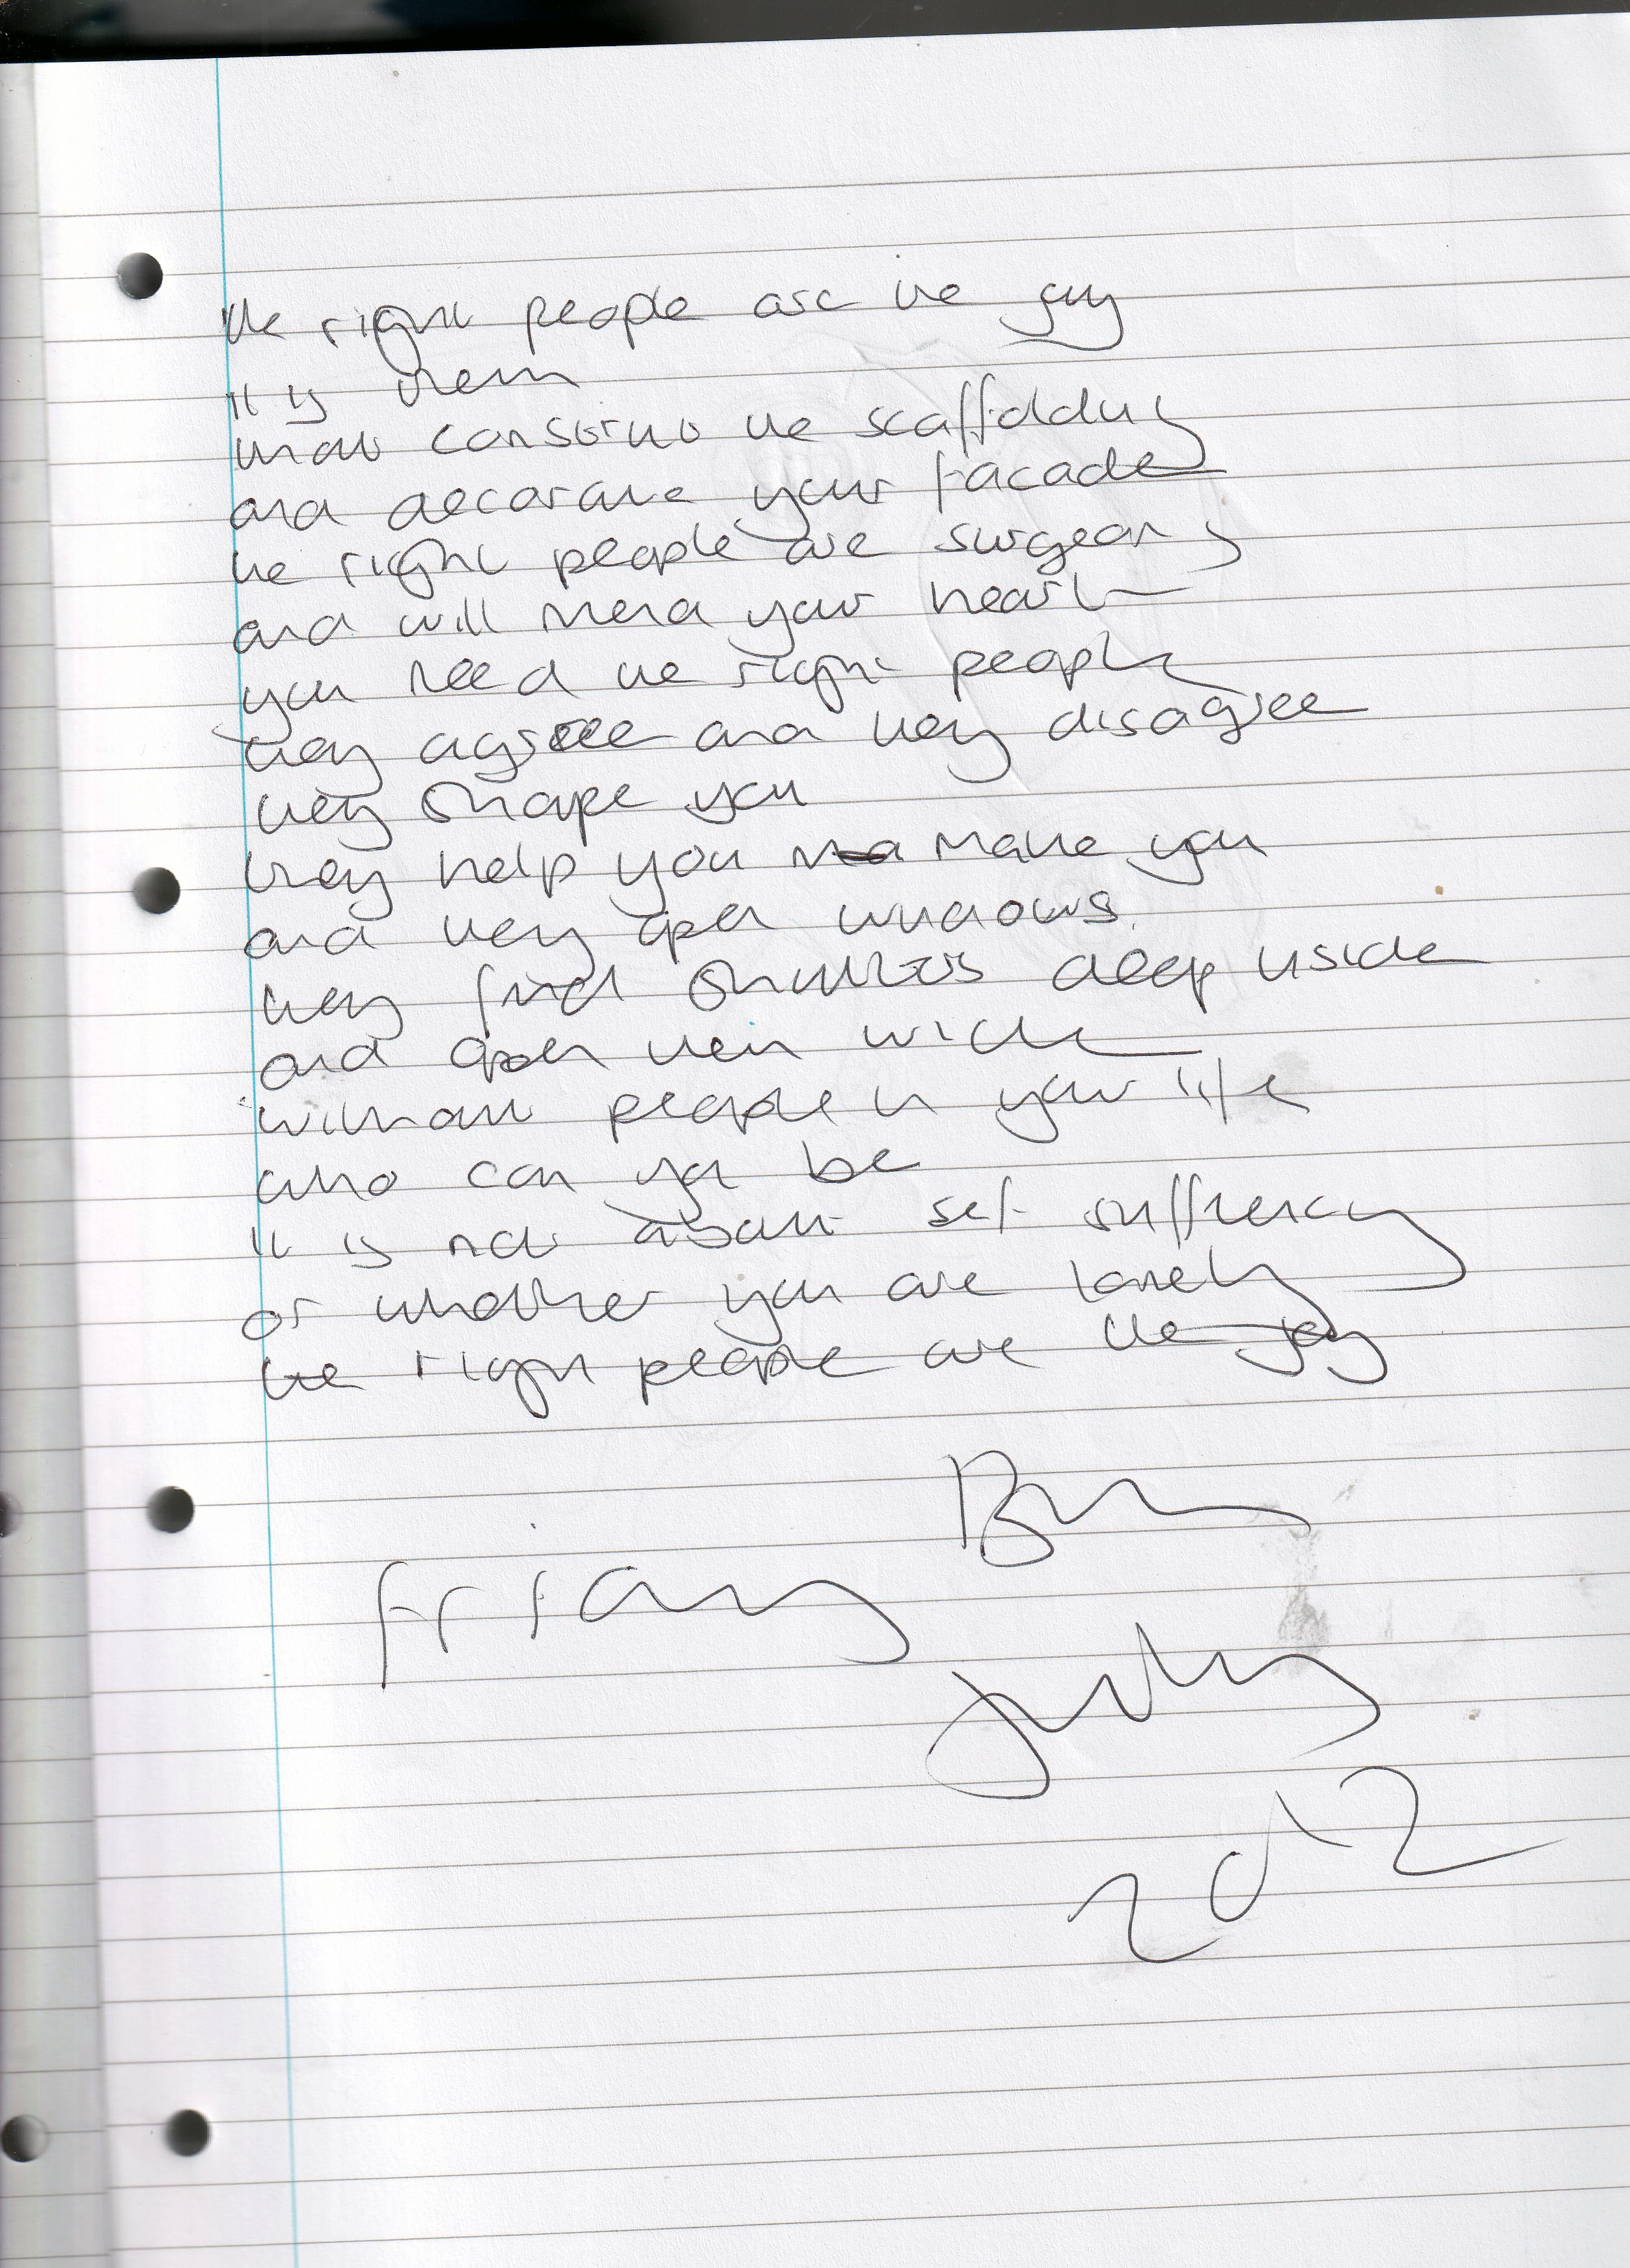 the right people are the joy
it is them
that construct the scaffolding
and decorate your facade
the right people are surgeons
and will mend your heart
you need the right people
they agree and they disagree
they shape you
they help you make you
and they open windows
they find shutters deep inside
and open them wide
without people in your life
who can you be
it is not about self sufficiency
or whether you are lonely
the right people are the joy
Friday
July
2012